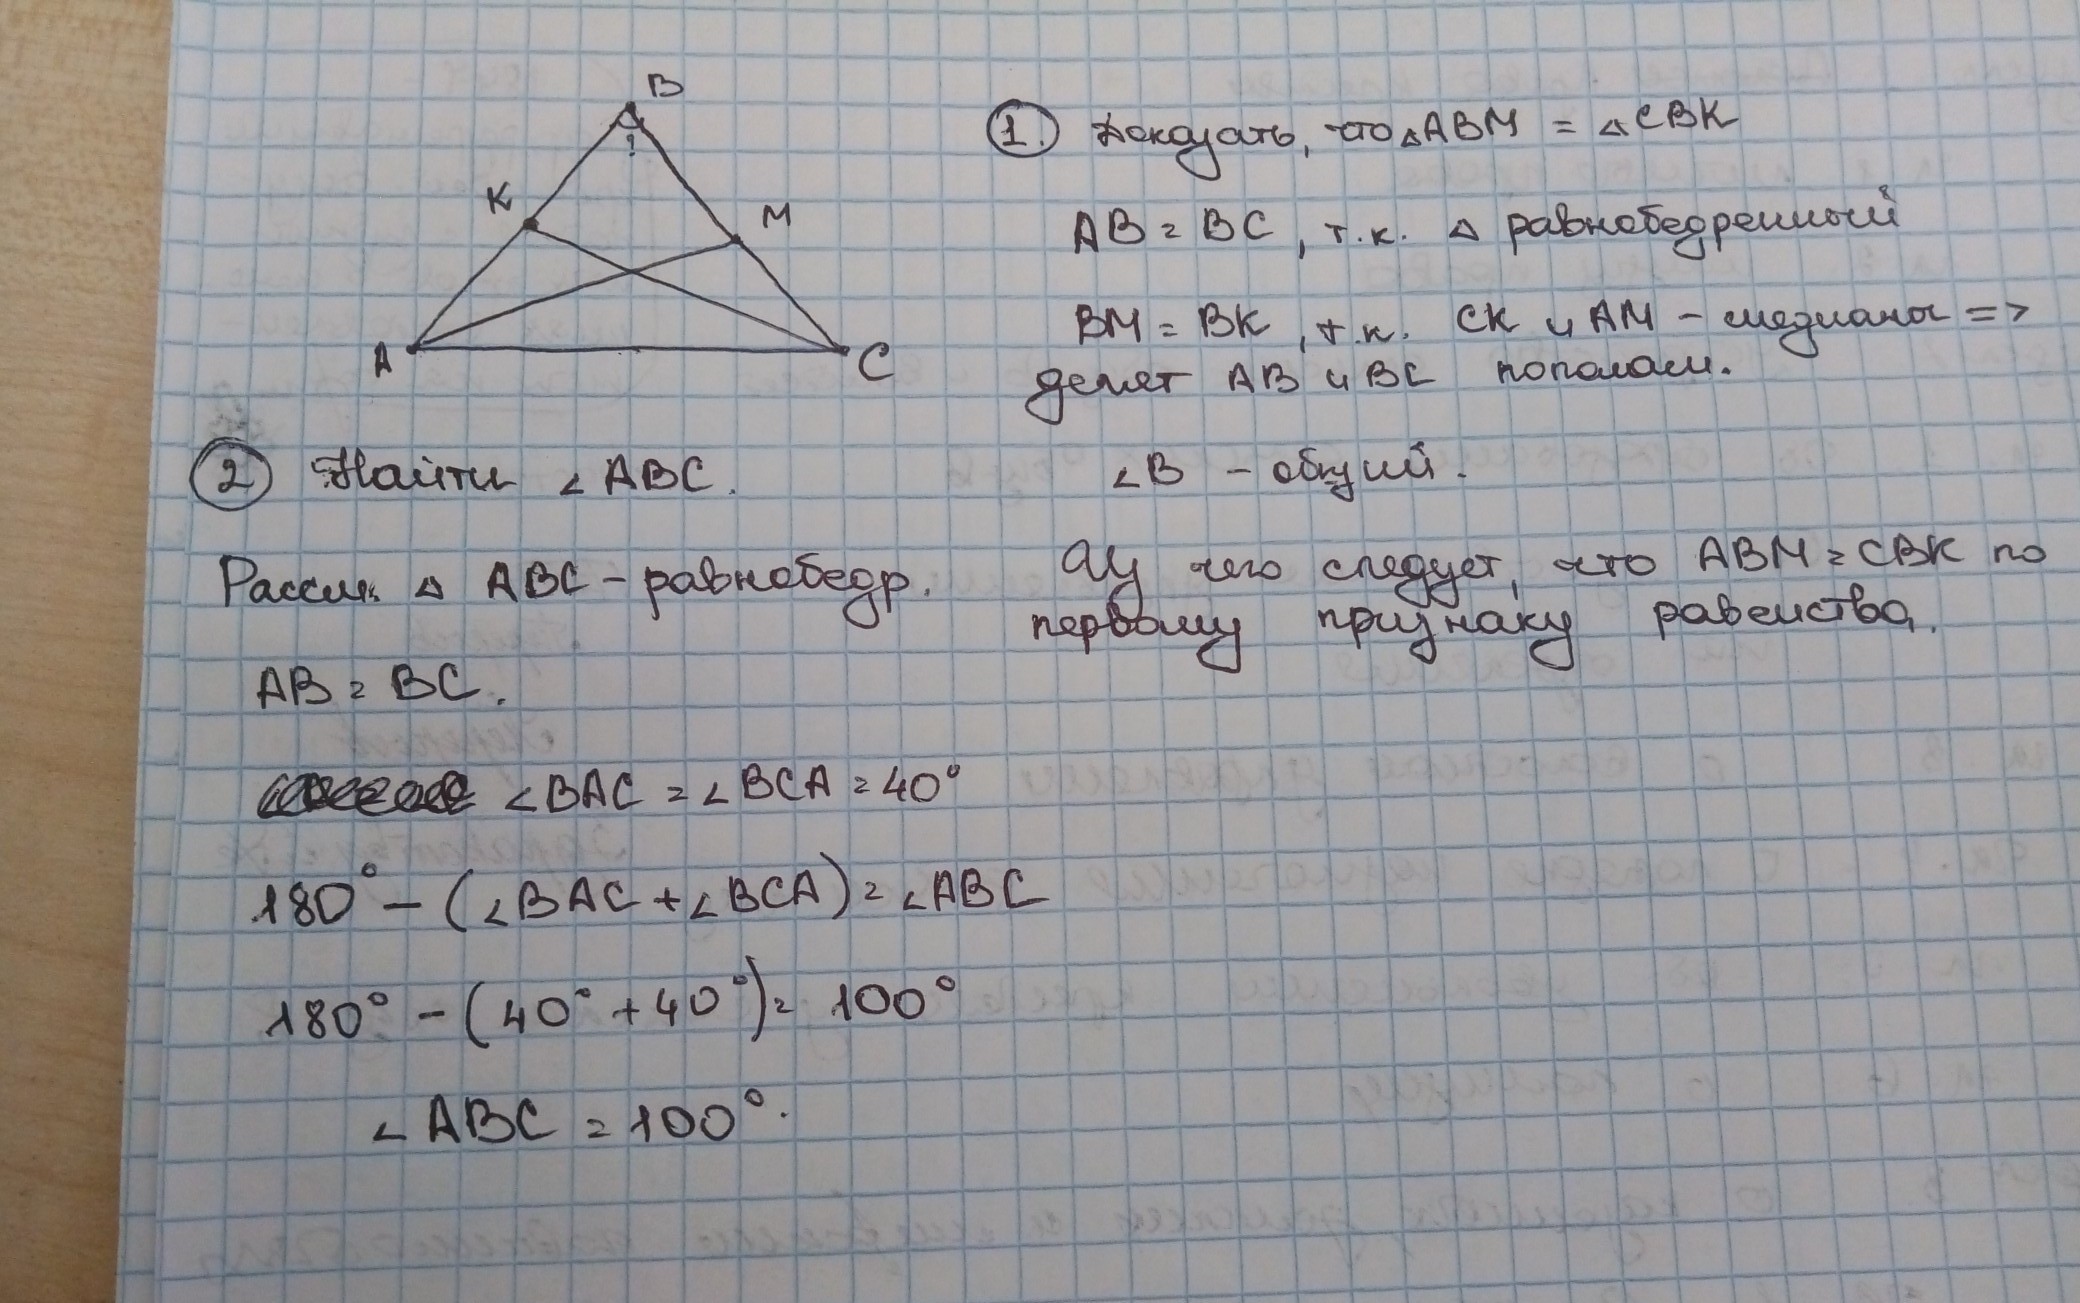 B
K
M
A
C
?
1. Доказать, что △ABM = △CBK
AB = BC, т.к. △ равнобедренный
BM = BK, т.к. CK и AM – медианы =>
делят AB и BC пополам.
∠B – общий.
Из чего следует, что ABM = CBK по
первому признаку равенства.
2 Найти ∠ABC.
Рассм. △ ABC – равнобедр.
AB = BC.
∠BAC = ∠BCA = 40°
180° – (∠BAC + ∠BCA) = ∠ABC
180° – (40° + 40°) = 100°
∠ABC = 100°.